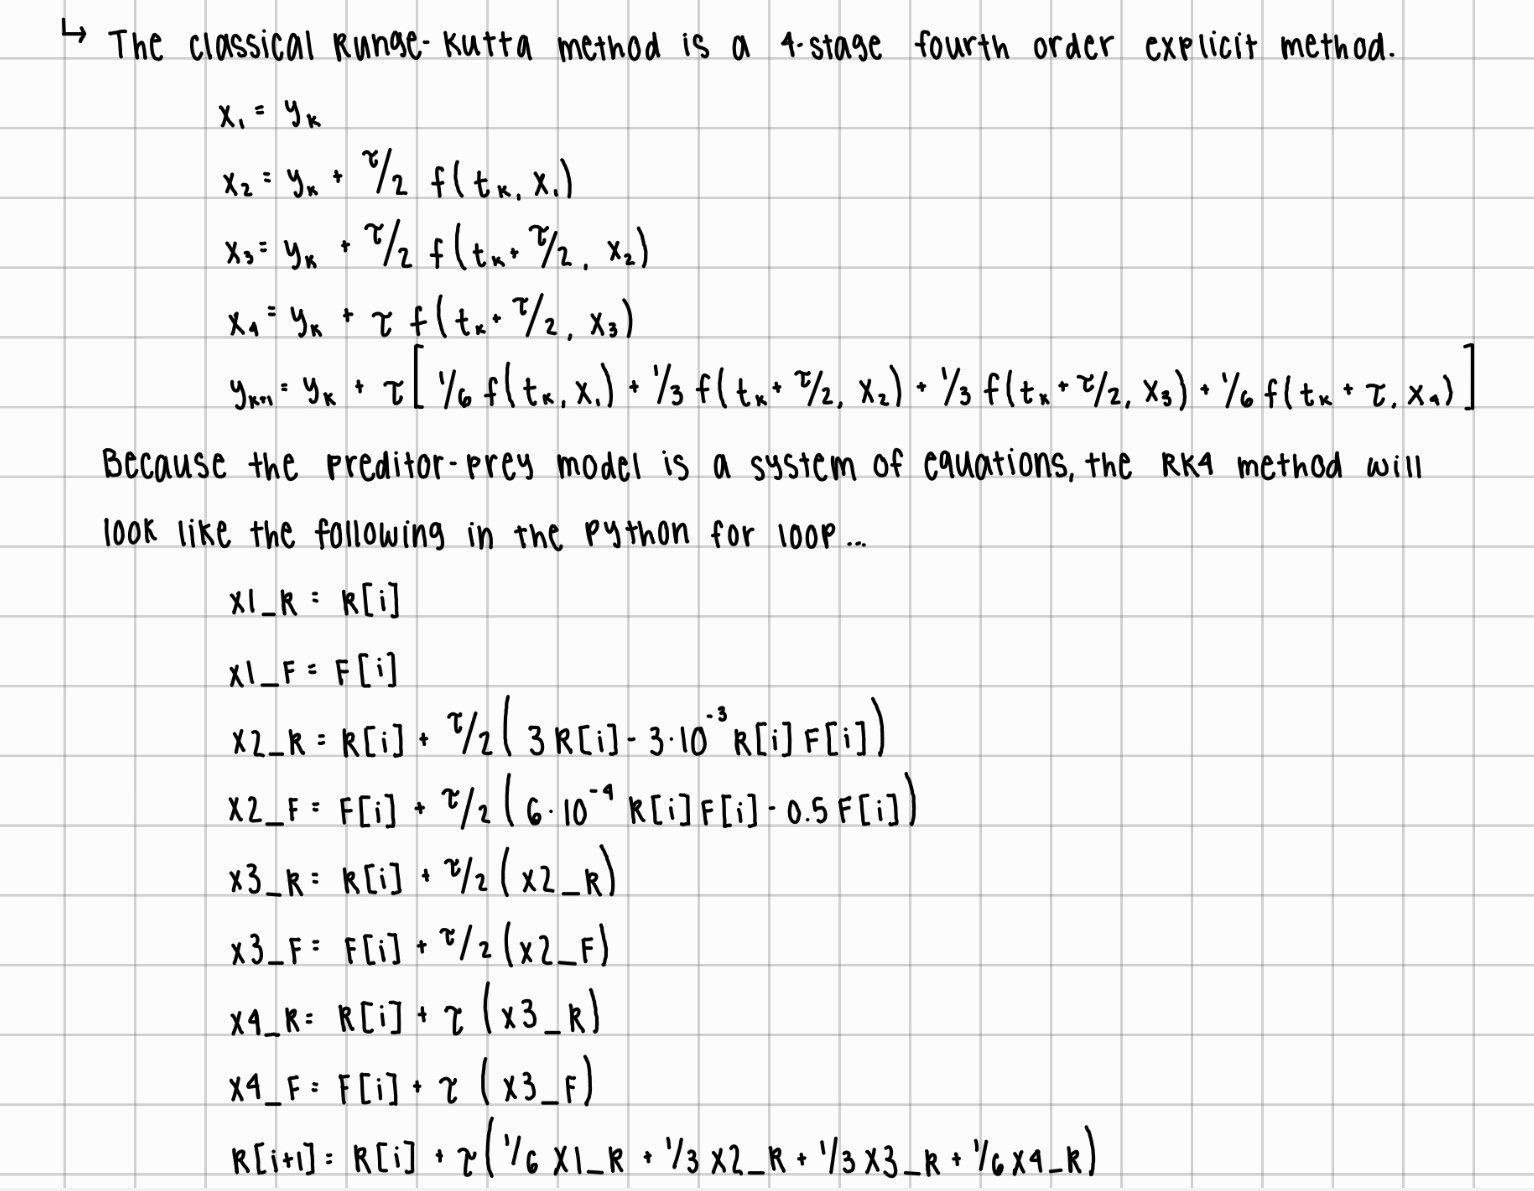 ↳ The classical Runge-Kutta method is a 4-stage fourth order explicit method.
x₁ = yₖ
x₂ = yₖ + τ/2 f(tₖ, x₁)
x₃ = yₖ + τ/2 f(tₖ + τ/2, x₂)
x₄ = yₖ + τ f(tₖ + τ/2, x₃)
yₖ₊₁ = yₖ + τ[1/6 f(tₖ, x₁) + 1/3 f(tₖ + τ/2, x₂) + 1/3 f(tₖ + τ/2, x₃) + 1/6 f(tₖ + τ, x₄)]
Because the preditor-prey model is a system of equations, the RK4 method will
look like the following in the python for loop...
x1_R = R[i]
x1_F = F[i]
x2_R = R[i] + τ/2(3R[i] - 3·10⁻³ R[i] F[i])
x2_F = F[i] + τ/2(6·10⁻⁴ R[i] F[i] - 0.5 F[i])
x3_R = R[i] + τ/2(x2_R)
x3_F = F[i] + τ/2(x2_F)
x4_R = R[i] + τ(x3_R)
x4_F = F[i] + τ(x3_F)
R[i+1] = R[i] + τ(1/6 x1_R + 1/3 x2_R + 1/3 x3_R + 1/6 x4_R)